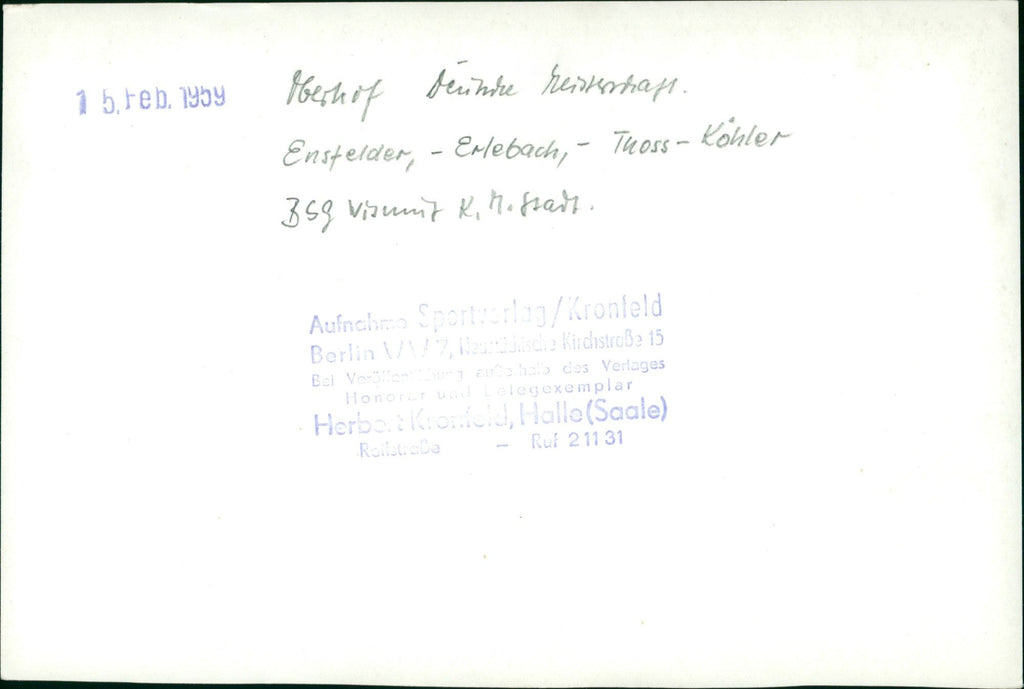 15. Feb. 1959
Oberhof Deutsche Meisterschaft.
Ensfelder, - Erlebach, - Thoss - Köhler
BSG Wismut K. M. Stadt.
Aufnahme Sportverlag/Kronfeld
Berlin W 7, Neustädtische Kirchstraße 15
Bei Veröffentlichung außerhalb des Verlages
Honorar und Belegexemplar
Herbert Kronfeld, Halle (Saale)
Reilstraße – Ruf 2 11 31